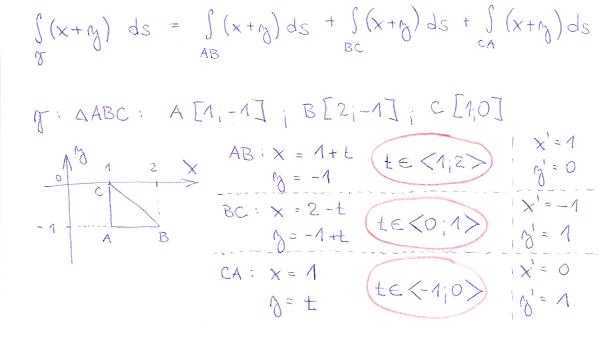 ∫γ (x+y) ds = ∫AB (x+y) ds + ∫BC (x+y) ds + ∫CA (x+y) ds
γ : △ABC : A [1,-1] ; B[2;-1] ; C [1,0]
y
0 1 2 x
C
-1 A B
AB : x = 1+t t∈<1;2> x' = 1
y = -1 y' = 0
BC : x = 2-t t∈<0;1> x' = -1
y = -1+t y' = 1
CA : x = 1 t∈<-1;0> x' = 0
y = t y' = 1